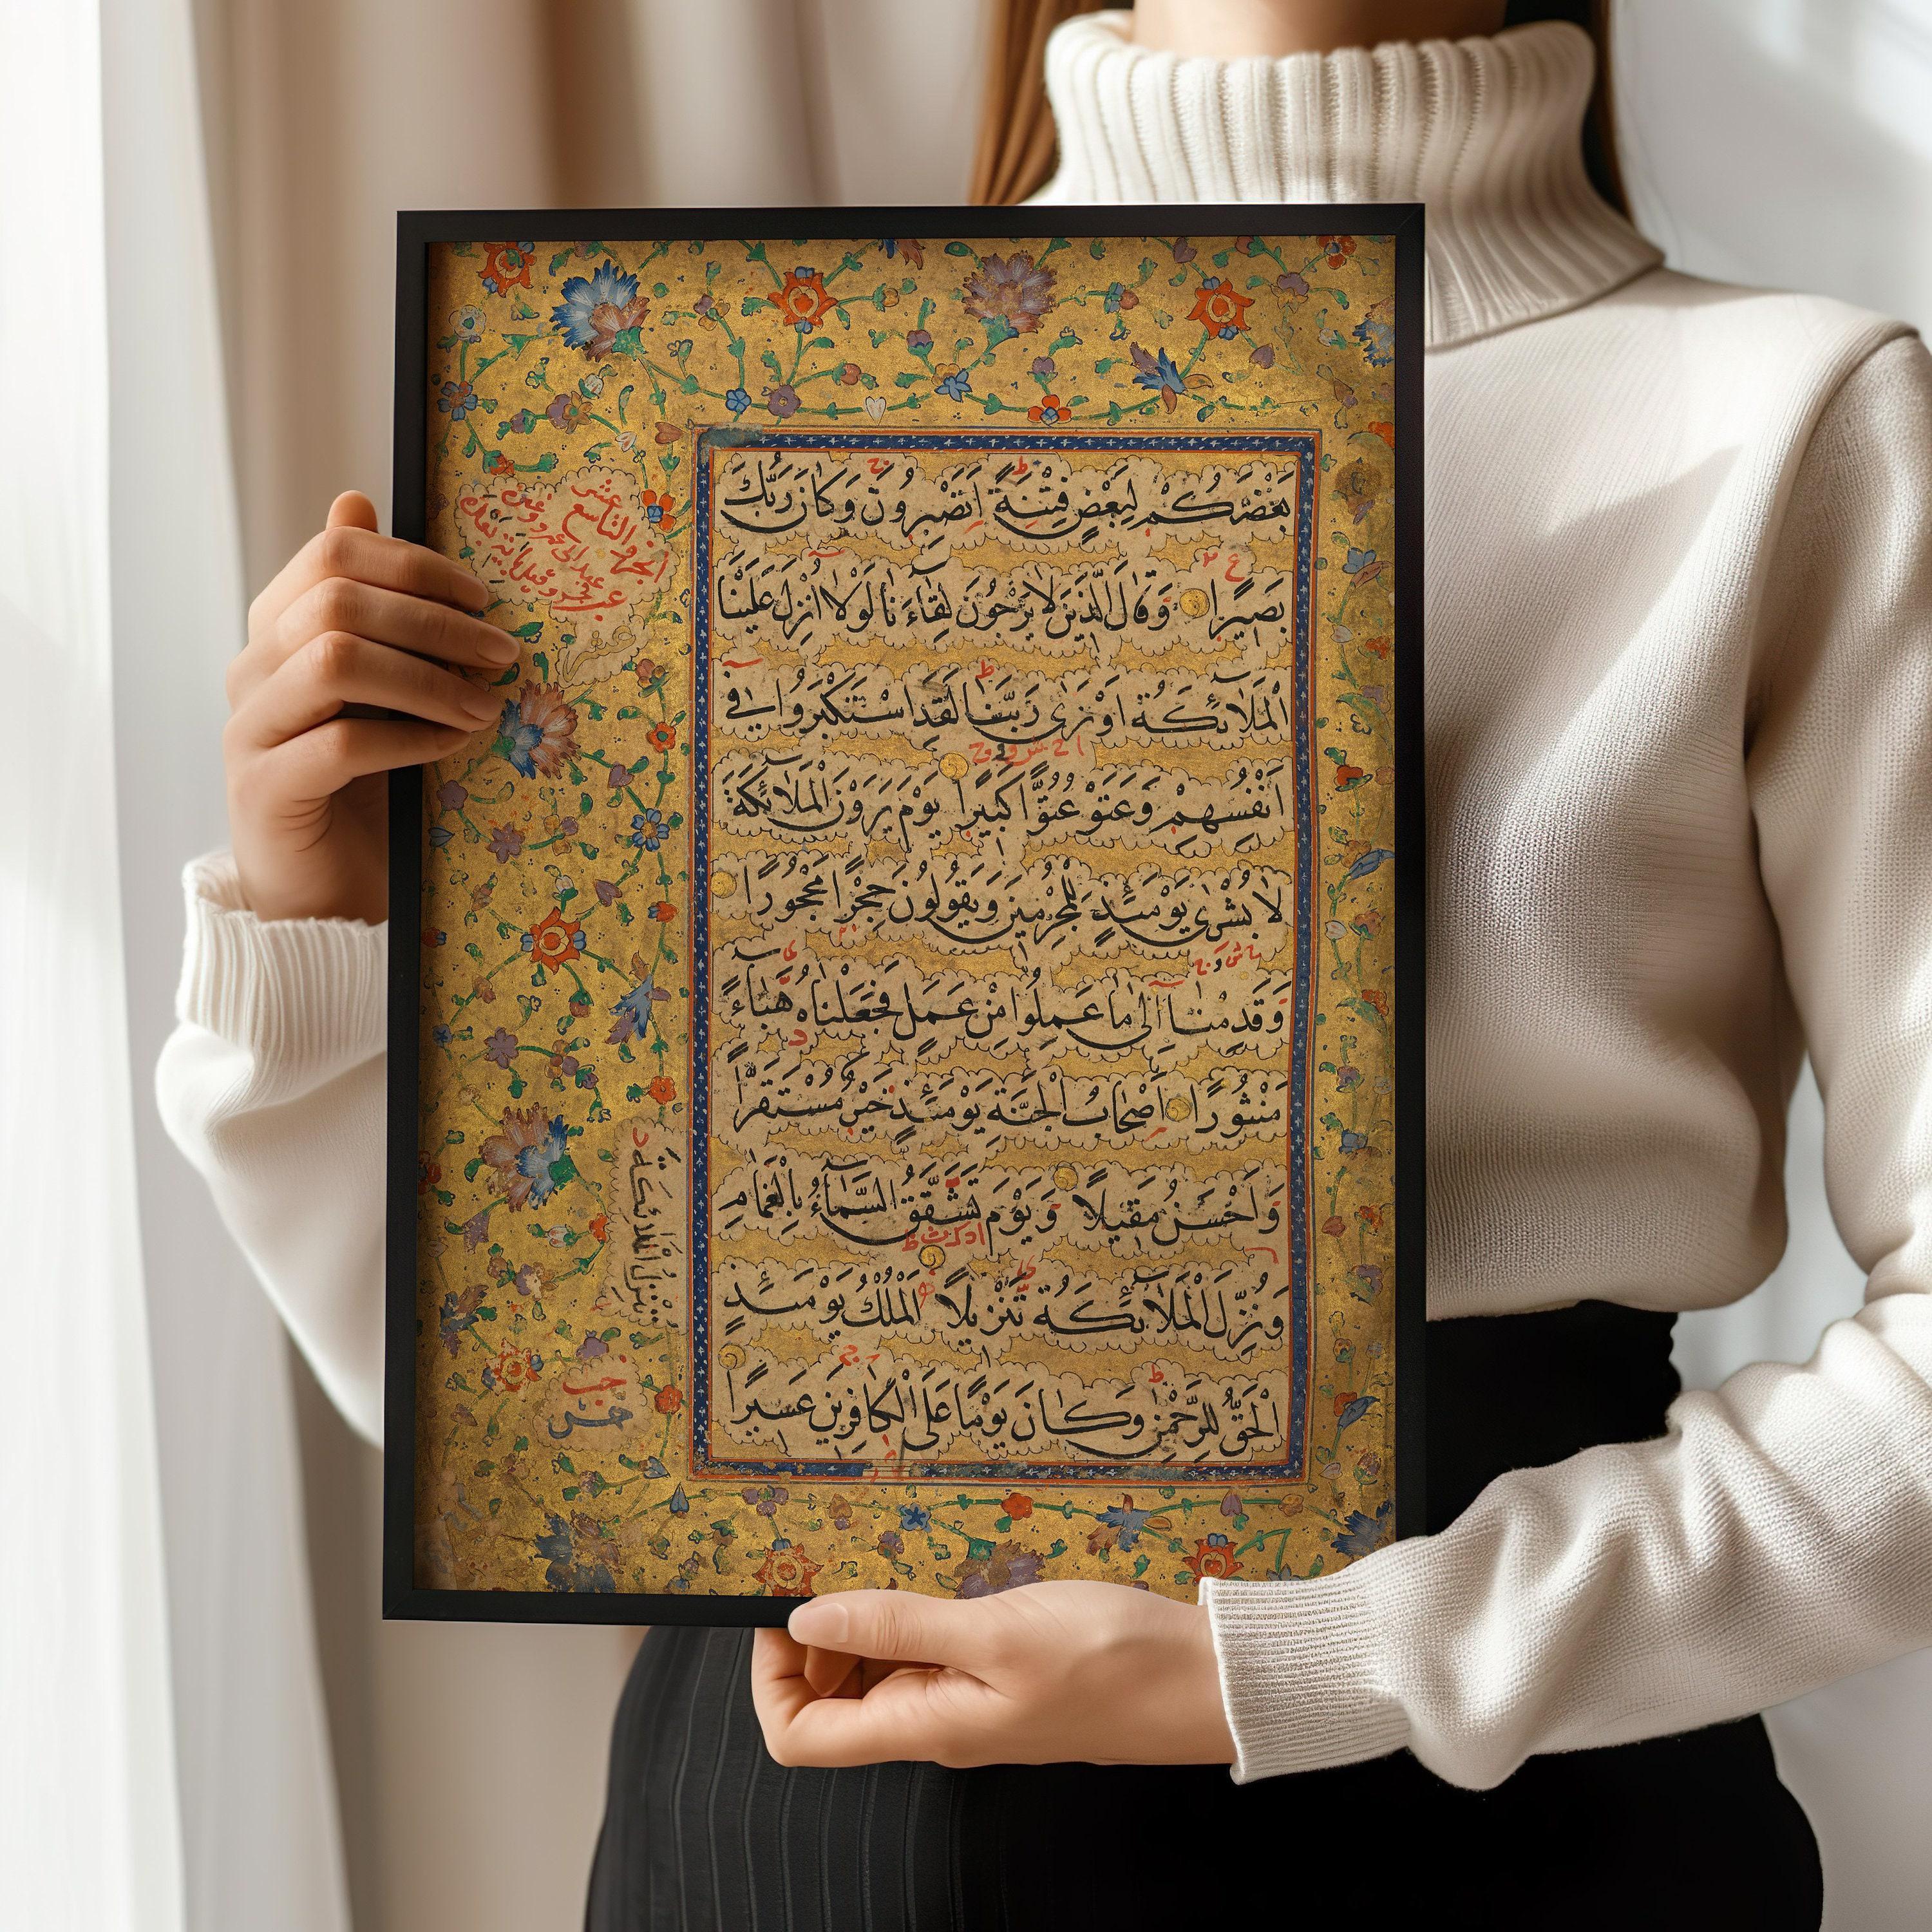 بَعْضَكُمْ لِبَعْضٍ فِتْنَةً اَتَصْبِرُونَ وَكَانَ رَبُّكَ
بَصِيرًا وَقَالَ الَّذِينَ لَا يَرْجُونَ لِقَاءَنَا لَوْلَا اُنْزِلَ عَلَيْنَا
الْمَلَائِكَةُ اَوْ نَرٰى رَبَّنَا لَقَدِ اسْتَكْبَرُوا فِي
اَنْفُسِهِمْ وَعَتَوْ عُتُوًّا كَبِيرًا يَوْمَ يَرَوْنَ الْمَلَائِكَةَ
لَا بُشْرٰى يَوْمَئِذٍ لِلْمُجْرِمِينَ وَيَقُولُونَ حِجْرًا مَحْجُورًا
وَقَدِمْنَا اِلٰى مَا عَمِلُوا مِنْ عَمَلٍ فَجَعَلْنَاهُ هَبَاءً
مَنْثُورًا اَصْحَابُ الْجَنَّةِ يَوْمَئِذٍ خَيْرٌ مُسْتَقَرًّا
وَاَحْسَنُ مَقِيلًا وَيَوْمَ تَشَقَّقُ السَّمَاءُ بِالْغَمَامِ
وَنُزِّلَ الْمَلَائِكَةُ تَنْزِيلًا الْمُلْكُ يَوْمَئِذٍ
الْحَقُّ لِلرَّحْمٰنِ وَكَانَ يَوْمًا عَلَى الْكَافِرِينَ عَسِيرًا
الجزء التاسع عشر